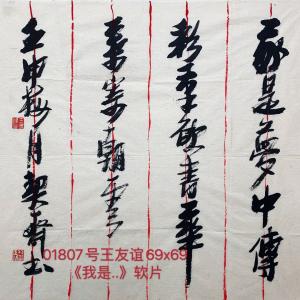 我是夢中傳
彩筆欲書華
葉寄朝雲
壬申梅月契齋
01807号王友谊69x69
《我是..》软片